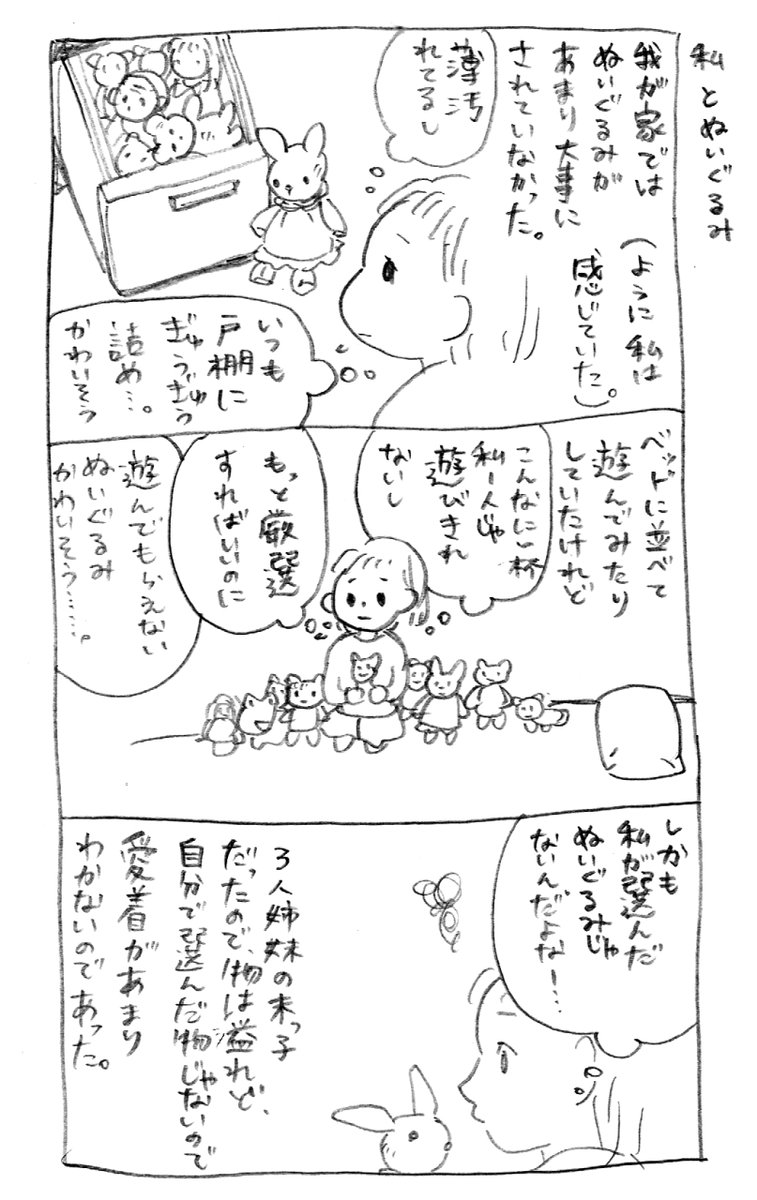 私とぬいぐるみ
我が家では
ぬいぐるみが
あまり大事に
されていなかった。
(ように私は
感じていた。)
薄汚
れてるし
いつも
戸棚に
ぎゅうぎゅう
詰め…。
かわいそう
ベッドに並べて
遊んでみたり
していたけれど
こんなにいっ杯
私1人じゃ
遊びきれ
ないし
もっと厳選
すればいいのに
遊んでもらえない
ぬいぐるみ
かわいそう……。
しかも
私が選んだ
ぬいぐるみじゃ
ないんだよなー…
3人姉妹の末っ子
だったので、物は溢れど、
自分で選んだ物じゃないので
愛着があまり
わかないのであった。